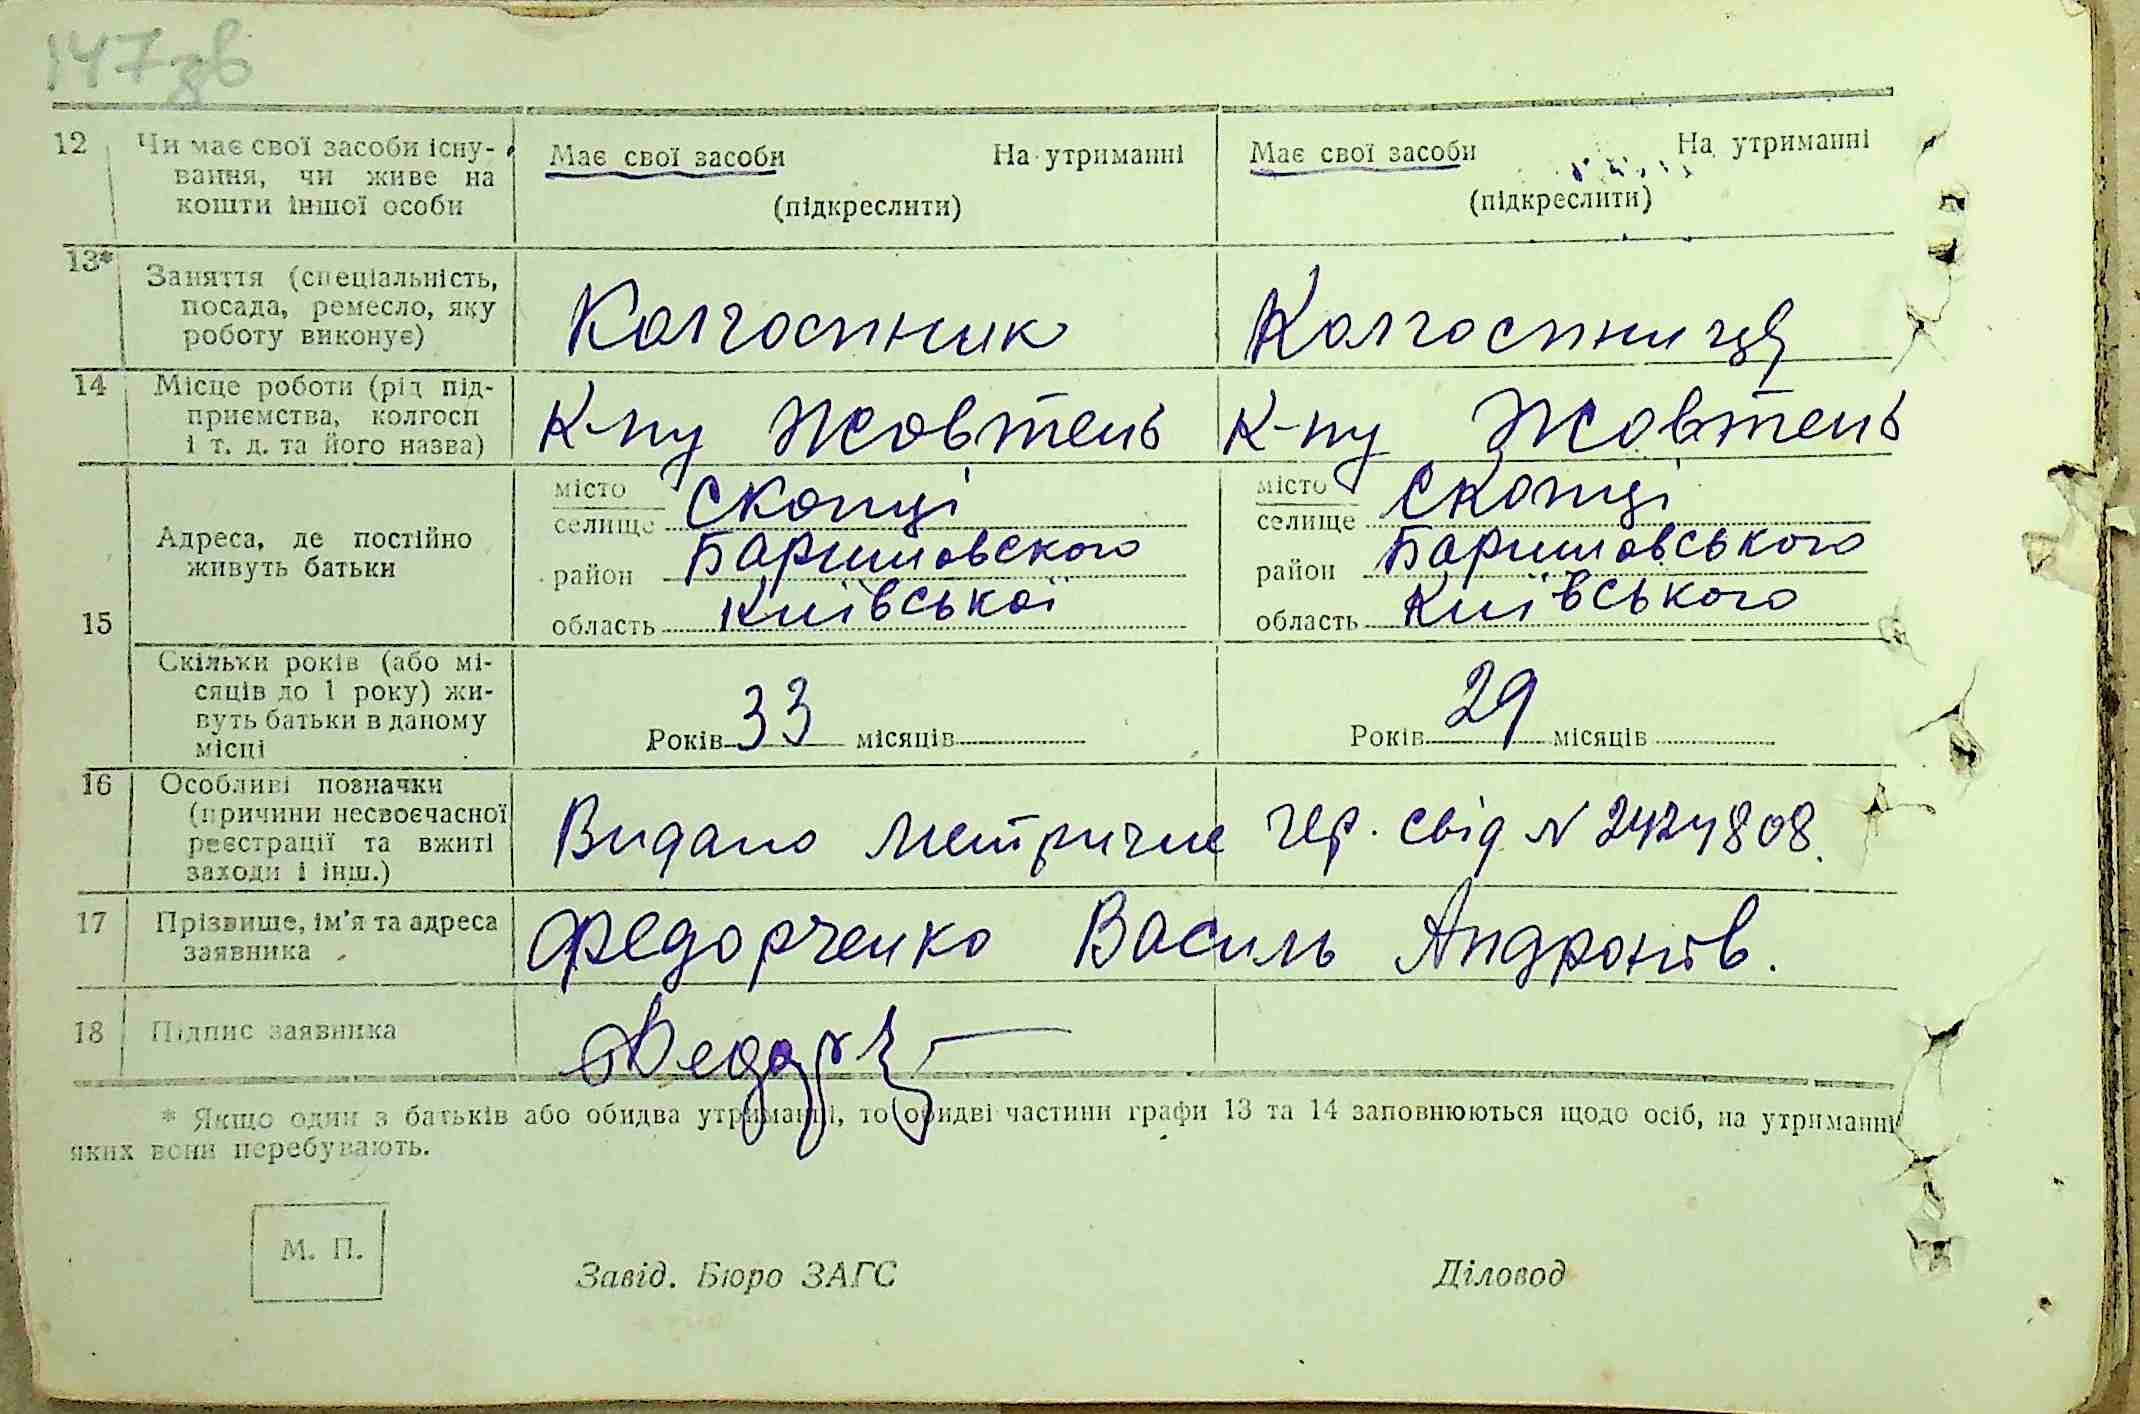 147зв
12 Чи має свої засоби існу- Має свої засоби На утриманні Має свої засоби На утриманні
вання, чи живе на
кошти іншої особи (підкреслити) (підкреслити)
13* Заняття (спеціальність,
посада, ремесло, яку Колгоспник Колгоспниця
роботу виконує)
14 Місце роботи (рід під-
приємства, колгосп К-пу Жовтень К-пу Жовтень
і т. д. та його назва)
15 Адреса, де постійно
живуть батьки
місто
селище Скопці
район Баришовского
область Київської
місто
селище Скопці
район Баришовського
область Київського
Скільки років (або мі-
сяців до 1 року) жи-
вуть батьки в даному Років 33 місяців Років 29 місяців
місці
16 Особливі позначки
(причини несвоєчасної Видано метричне чер. свід N 2424808.
реєстрації та вжиті
заходи і інш.)
17 Прізвище, ім'я та адреса Федорченко Василь Андронів.
заявника
18 Підпис заявника Федорч
* Якщо один з батьків або обидва утриманні, то обидві частини графи 13 та 14 заповнюються щодо осіб, на утриманні
яких вони перебувають.
М. П.
Завід. Бюро ЗАГС Діловод